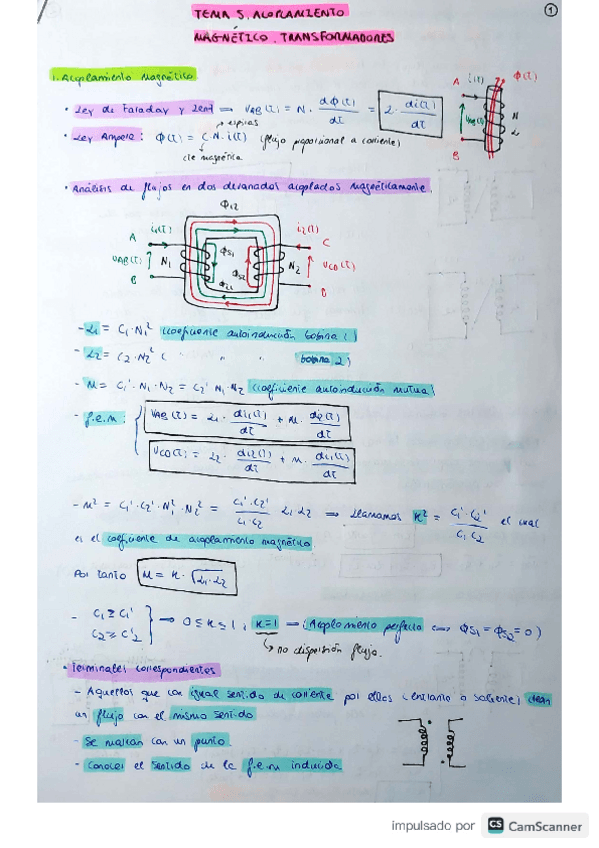 TEMA 5. ACOPLAMIENTO
MAGNÉTICO. TRANSFORMADORES
1
1. Acoplamiento Magnético
• Ley de Faraday y Lenz ⇒ VAB(t) = N · dφ(t)/dt = L · di(t)/dt
espiras
• Ley Ampere: φ(t) = C·N·i(t) (flujo proporcional a corriente)
cte magnética
A i(t) φ(t)
VAB(t) N
L
B
• Análisis de flujos en dos devanados acoplados magnéticamente.
φ12
A i1(t) i2(t) C
φS1
VAB(t) N1 φS2 N2 VCD(t)
B φ21 D
- L1 = C1·N1² (coeficiente autoinducción bobina 1)
- L2 = C2·N2² ( " " " bobina 2)
- M = C1'·N1·N2 = C2'·N1·N2 (coeficiente autoinducción mutua)
- f.e.m: VAB(t) = L1 · di1(t)/dt + M · di2(t)/dt
VCD(t) = L2 · di2(t)/dt + M · di1(t)/dt
- M² = C1'·C2'·N1²·N2² = C1'·C2'/C1·C2 L1 L2 ⇒ llamamos K² = C1'·C2'/C1 C2 el cual
es el coeficiente de acoplamiento magnético
Por tanto M = K · √L1·L2
- C1 ≥ C1'
C2 ≥ C2' } ⇒ 0 ≤ K ≤ 1, K=1 → (Acoplamiento perfecto ⟺ φS1 = φS2 = 0)
no dispersión flujo.
• Terminales correspondientes
- Aquellos que con igual sentido de corriente por ellos (entrante o saliente) crean
un flujo con el mismo sentido
- Se marcan con un punto.
- Conocer el sentido de la f.e.m inducida
impulsado por CS CamScanner